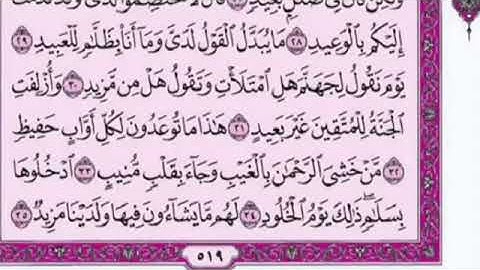 إِلَيْكُم بِالْوَعِيدِ ٢٨ مَا يُبَدَّلُ الْقَوْلُ لَدَيَّ وَمَا أَنَا بِظَلَّامٍ لِّلْعَبِيدِ ٢٩
يَوْمَ نَقُولُ لِجَهَنَّمَ هَلِ امْتَلَأْتِ وَتَقُولُ هَلْ مِن مَّزِيدٍ ٣٠ وَأُزْلِفَتِ
الْجَنَّةُ لِلْمُتَّقِينَ غَيْرَ بَعِيدٍ ٣١ هَٰذَا مَا تُوعَدُونَ لِكُلِّ أَوَّابٍ حَفِيظٍ
٣٢ مَّنْ خَشِيَ الرَّحْمَٰنَ بِالْغَيْبِ وَجَاءَ بِقَلْبٍ مُّنِيبٍ ٣٣ ادْخُلُوهَا
بِسَلَامٍ ذَٰلِكَ يَوْمُ الْخُلُودِ ٣٤ لَهُم مَّا يَشَاءُونَ فِيهَا وَلَدَيْنَا مَزِيدٌ ٣٥
٥١٩